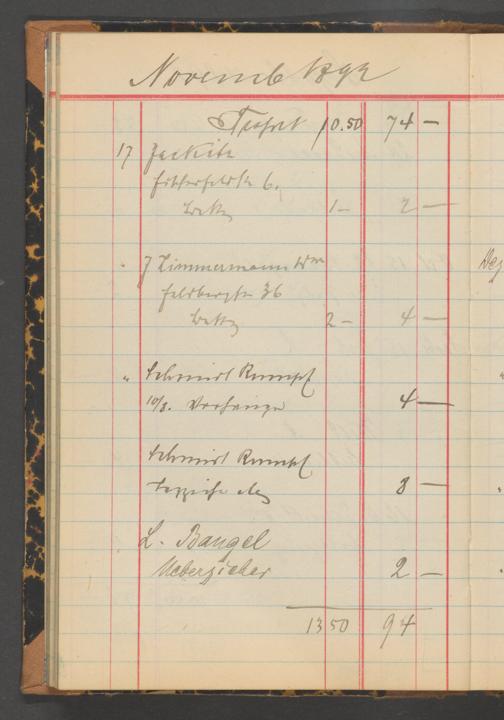 Novemb 1892
Trsprt 10.50 74 —
17 Jackite
6.
Bettz 1 — 2 —
" J Zimmermann Wwe
Feldbergstr 36
Bettz 2 — 4 —
" Schmidt Rumpf
10/8. Vorhänge 4 —
Schmidt Rumpf
Teppiche 8 —
L. Bangel
Ueberzieher 2 —
13 50 94
Dez